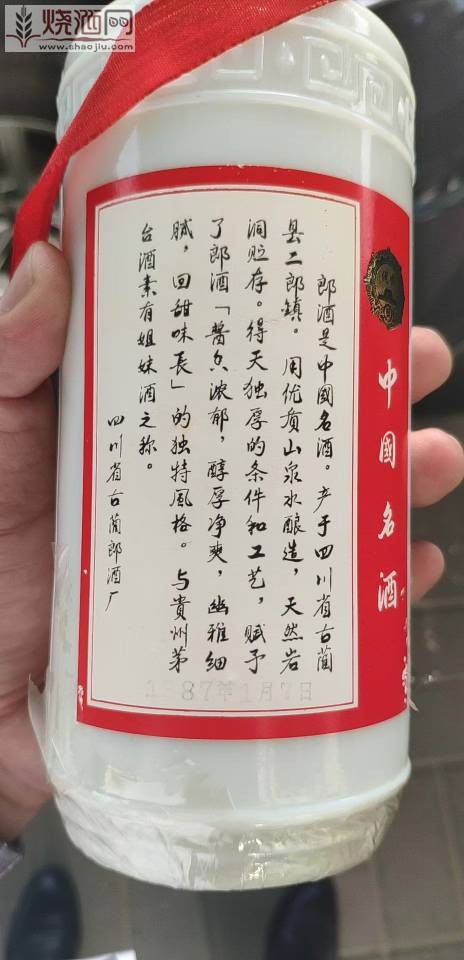 烧酒网
www.shaojiu.com
郎酒是中國名酒。产于四川省古蔺
县二郎鎮。用优质山泉水酿造，天然岩
洞贮存。得天独厚的条件和工艺，赋予
了郎酒「醬香浓郁，醇厚净爽，幽雅细
腻，回甜味長」的独特風格。与貴州茅
台酒素有姐妹酒之称。
四川省古蔺郎酒厂
1987年1月7日
中國名酒